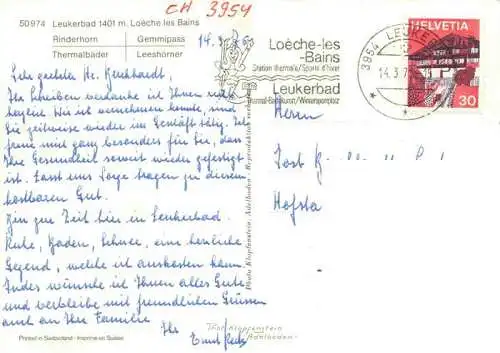 CH 3954
50974 Leukerbad 1401 m. Loèche les Bains
Rinderhorn Gemmipass
Thermalbäder Leeshörner
14.3.76
Loèche-les
-Bains
Station thermale/Sports d'hiver
Leukerbad
Thermal-Badekuren/Wintersportplatz
3954 LEUKER
14.3.7
HELVETIA
30
Sehr geehrter Hr. Burkhardt,
Ihr Schreiben verdanke ich Ihnen recht
herzlich. Wie ich vernehmen konnte, sind
Sie zeitweise wieder im Geschäft tätig. Ich
freue mich ganz besonders für Sie, dass
Ihre Gesundheit soweit wieder gefestigt
ist. Lasst uns Sorge tragen zu diesem
kostbaren Gut.
Zur Zeit bin in Leukerbad.
Ruhe, Baden, Schnee, eine herrliche
Gegend, welche ich auskosten kann.
Indes wünsche ich Ihnen alles Gute
und verbleibe mit freundlichen Grüssen
auch an Ihre Familie
Ihr
Herrn
Hofsta
Photo Klopfenstein, Adelboden - Reproduktion verboten
Printed in Switzerland - Imprimé en Suisse
Phot. Klopfenstein
Adelboden